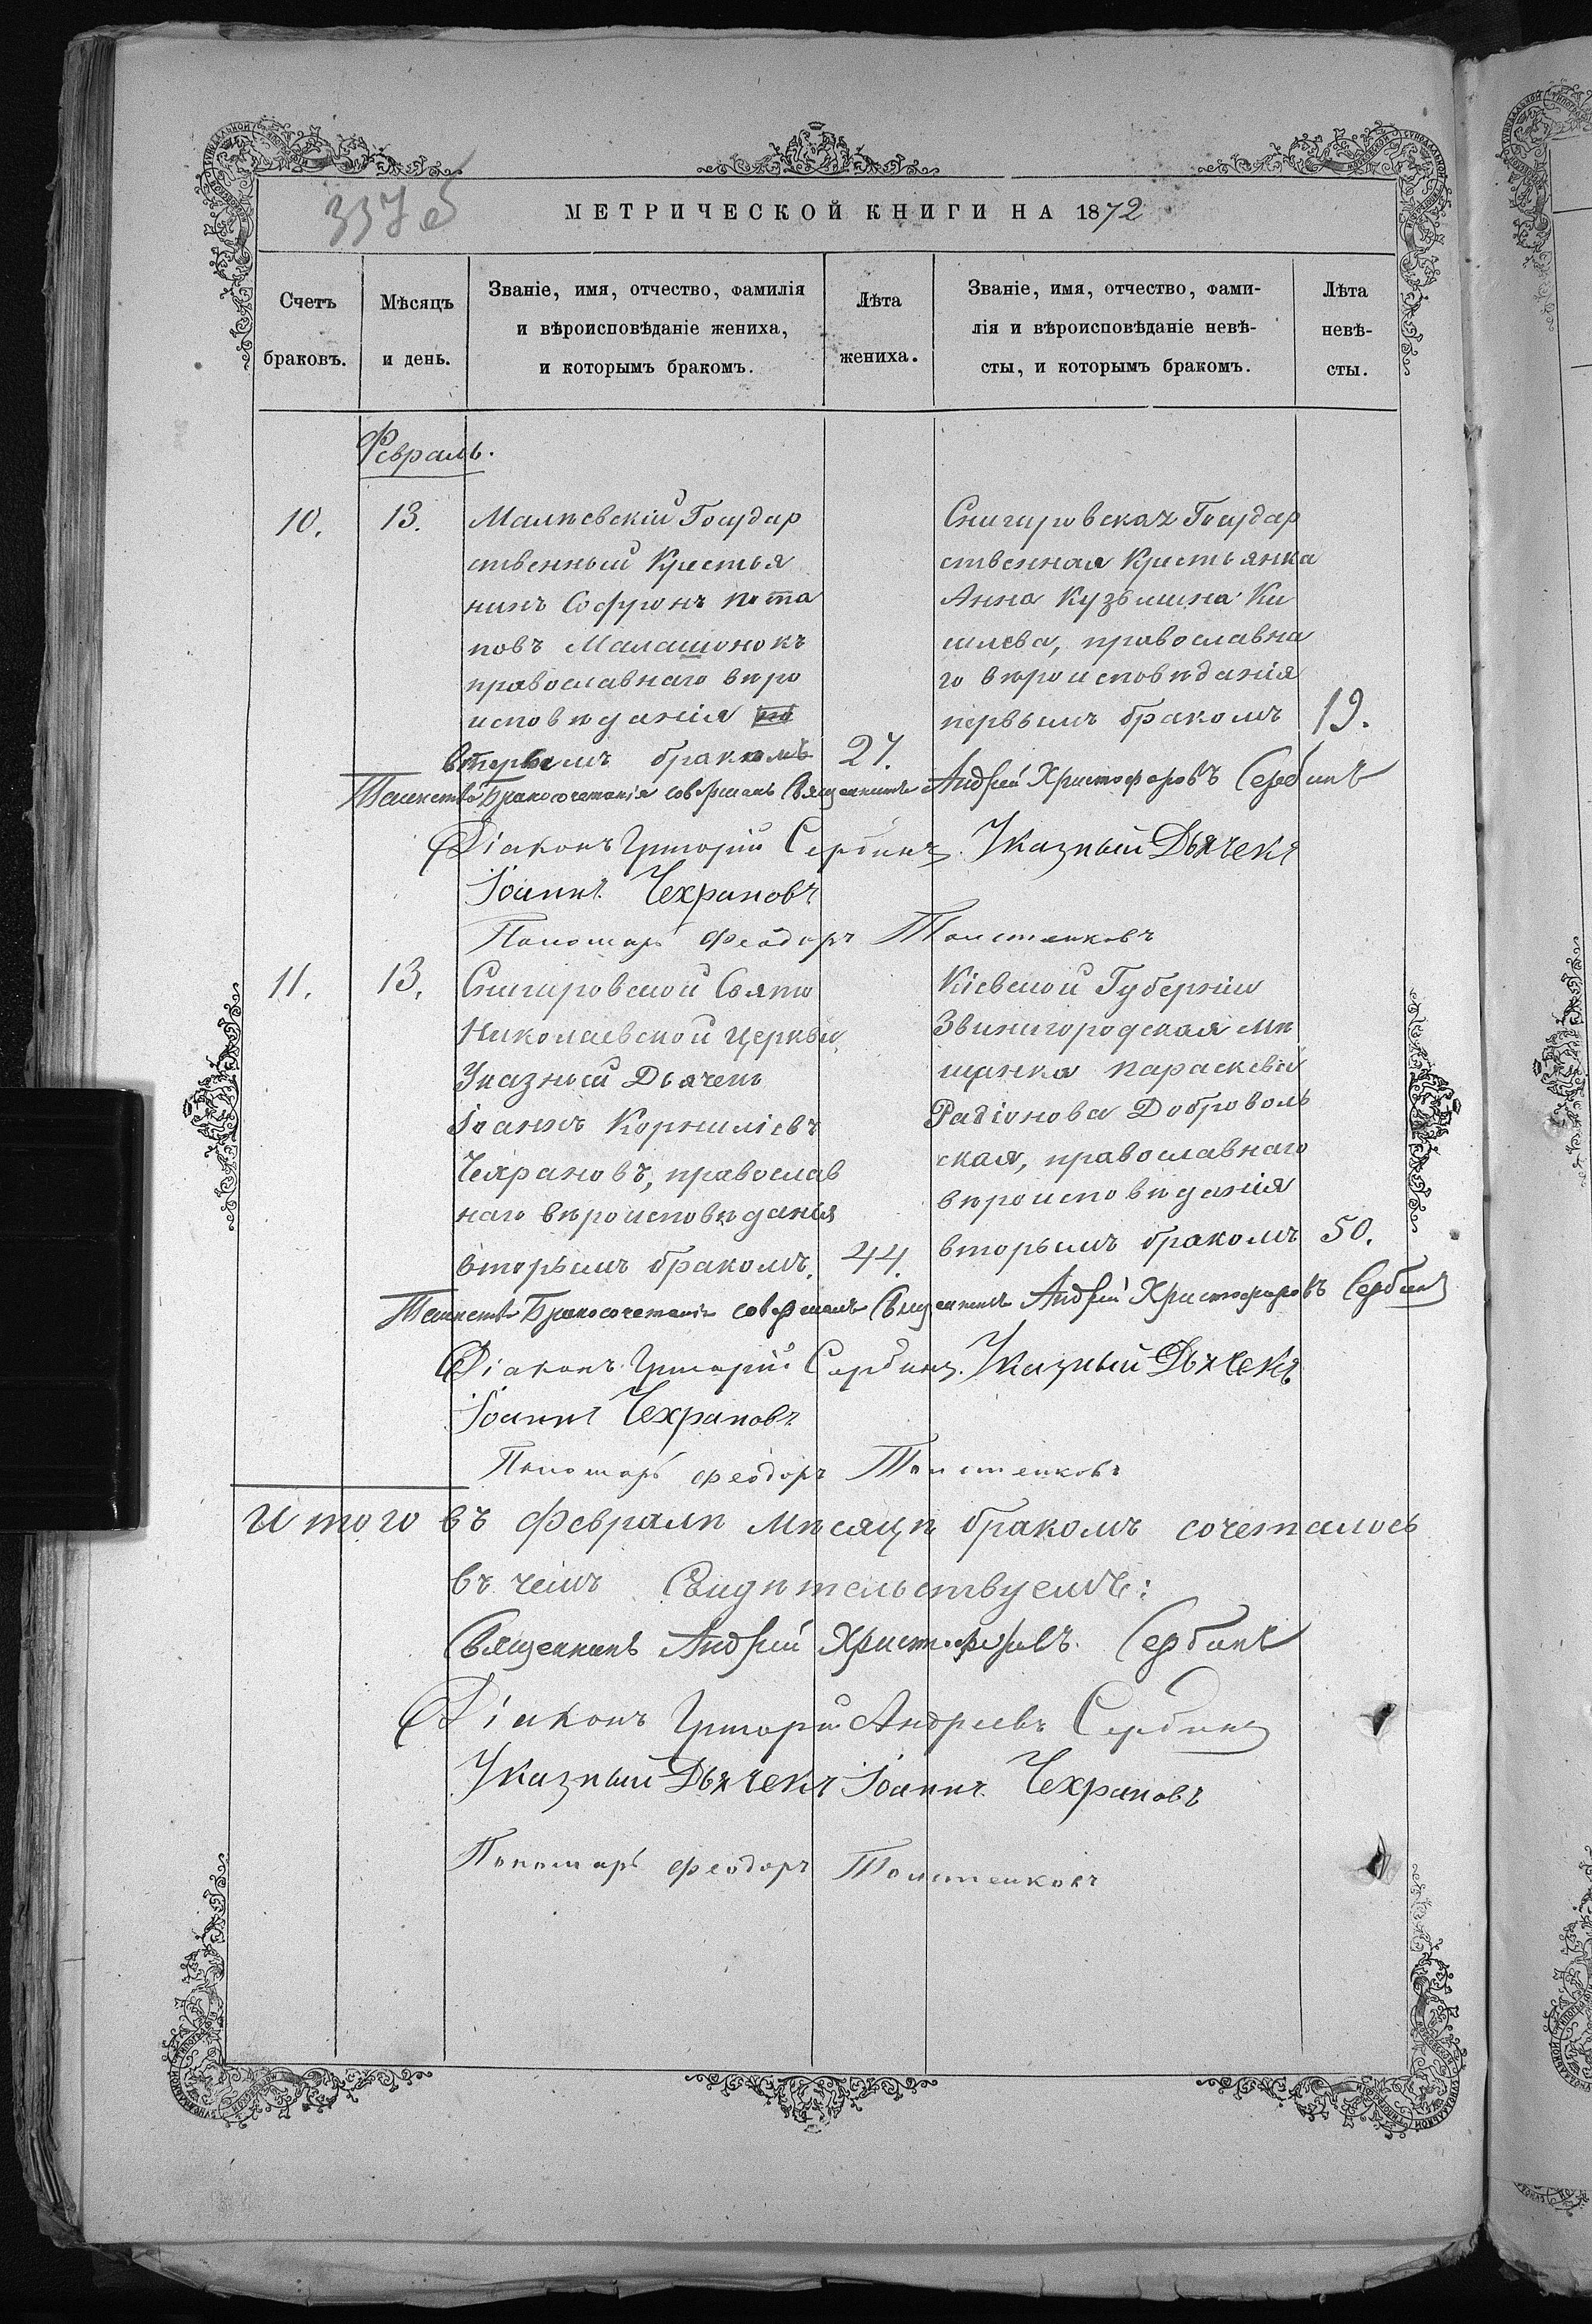 337 об
МЕТРИЧЕСКОЙ КНИГИ НА 1872
Счетъ браковъ.
Мѣсяцъ и день.
Званіе, имя, отчество, фамилія
и вѣроисповѣданіе жениха,
и которымъ бракомъ.
Лѣта
жениха.
Званіе, имя, отчество, фами-
лія и вѣроисповѣданіе невѣ-
сты, и которымъ бракомъ.
Лѣта
невѣ-
сты.
Февраль.
10.
13.
Малѣевскій Государ
ственный Крестья
нинъ Софронъ Пота
повъ Малашонокъ
православнаго вѣро
исповѣданія
вторымъ бракомъ
27.
Снигировская Государ
ственная Крестьянка
Анна Кузьмина Ки
шлева, православна
го вѣроисповѣданія
первымъ бракомъ
19.
Таинство Бракосочетанія совершалъ Священникъ Андрей Христофоровъ Сербинъ
Діаконъ Григорій Сербинъ. Указный Дьячекъ
Іоаннъ Чехрановъ
Пономарь Феодоръ Толстенковъ
11.
13.
Снигировской Свято
Николаевской церкви,
Указный Дьячекъ
Іоаннъ Корниліевъ
Чехрановъ, православ
наго вѣроисповѣданія
вторымъ бракомъ.
44.
Кіевской Губерніи
Звинигородская мѣ
щанка Параскева
Радіонова Доброволь
ская, православнаго
вѣроисповѣданія
вторымъ бракомъ
50.
Таинство Бракосочетанія совершалъ Священникъ Андрей Христофоровъ Сербинъ
Діаконъ Григорій Сербинъ. Указный Дьячекъ
Іоаннъ Чехрановъ
Пономарь Феодоръ Толстенковъ
Итого въ Февралѣ мѣсяцѣ бракомъ сочеталось
въ чемъ Свидѣтельствуемъ:
Священникъ Андрей Христофоровъ Сербинъ
Діаконъ Григорій Андреевъ Сербинъ
Указный Дьячекъ Іоаннъ Чехрановъ
Пономарь Феодоръ Толстенковъ